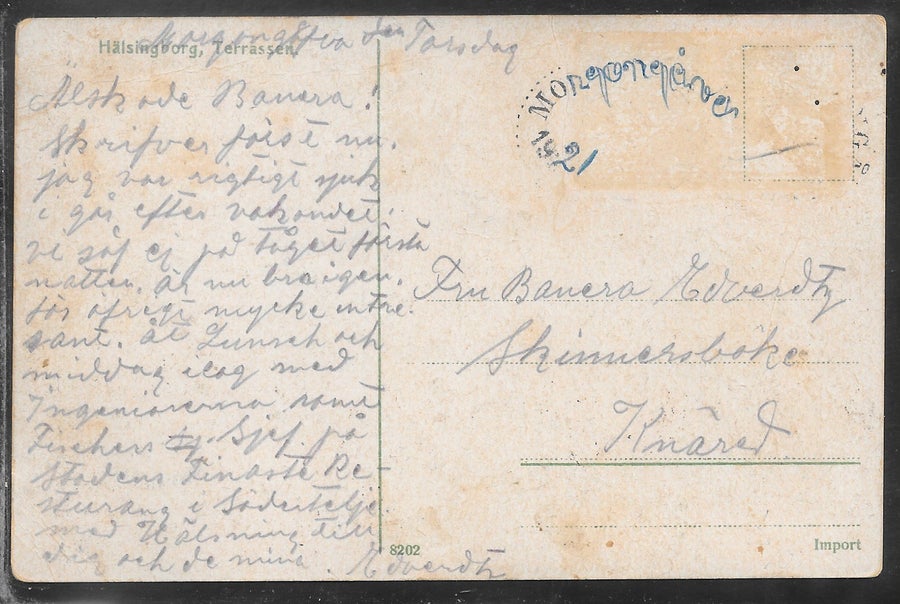 Hälsingborg, Terrassen.
Morgongåva den Torsdag
Älskade Banera!
Skrifver först nu.
jag var rigtigt sjuk
i går efter vakandet,
vi sof ej på tåget första
natten. är nu bra igen.
för öfrigt mycke intre
sant. åt Lunsch och
middag i dag med
Ingeniörerna samt
Fischers Sjef. på
stadens Finaste Re
sturang i Södertelje
med Hälsning till
dig och de mina. Edverdtz
MORGONGÅVA
1921
Fru Banera Edverdtz
Skinnersböke
Knäred
8202
Import